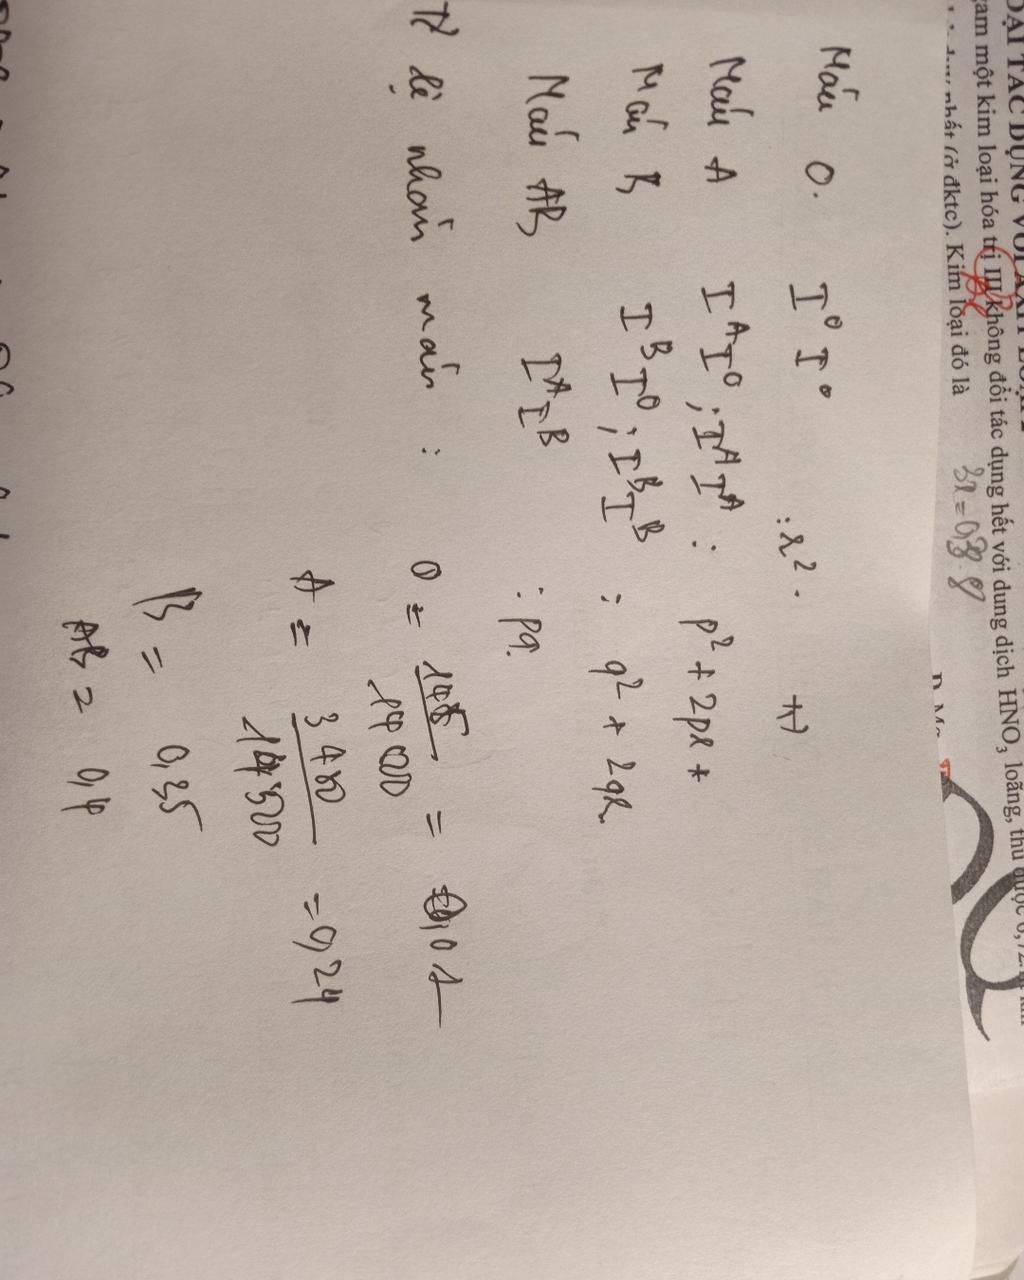 ĐẠI TÁC DỤNG VỚI AXIT LOẠI 1
gam một kim loại hóa trị III không đổi tác dụng hết với dung dịch HNO3 loãng, thu được 0,72
nhất (ở đktc). Kim loại đó là
3x = 0,3
Máu O. I^O I^O : r².
Máu A I^A I^O ; I^A I^A : p² + 2pr +
Máu B I^B I^O ; I^B I^B : q² + 2qr.
Máu AB I^A I^B : pq.
Tỉ lệ nhóm máu : O = 145/14 500 = 0,01
A = 3480/14500 = 0,24
B = 0,35
AB = 0,4